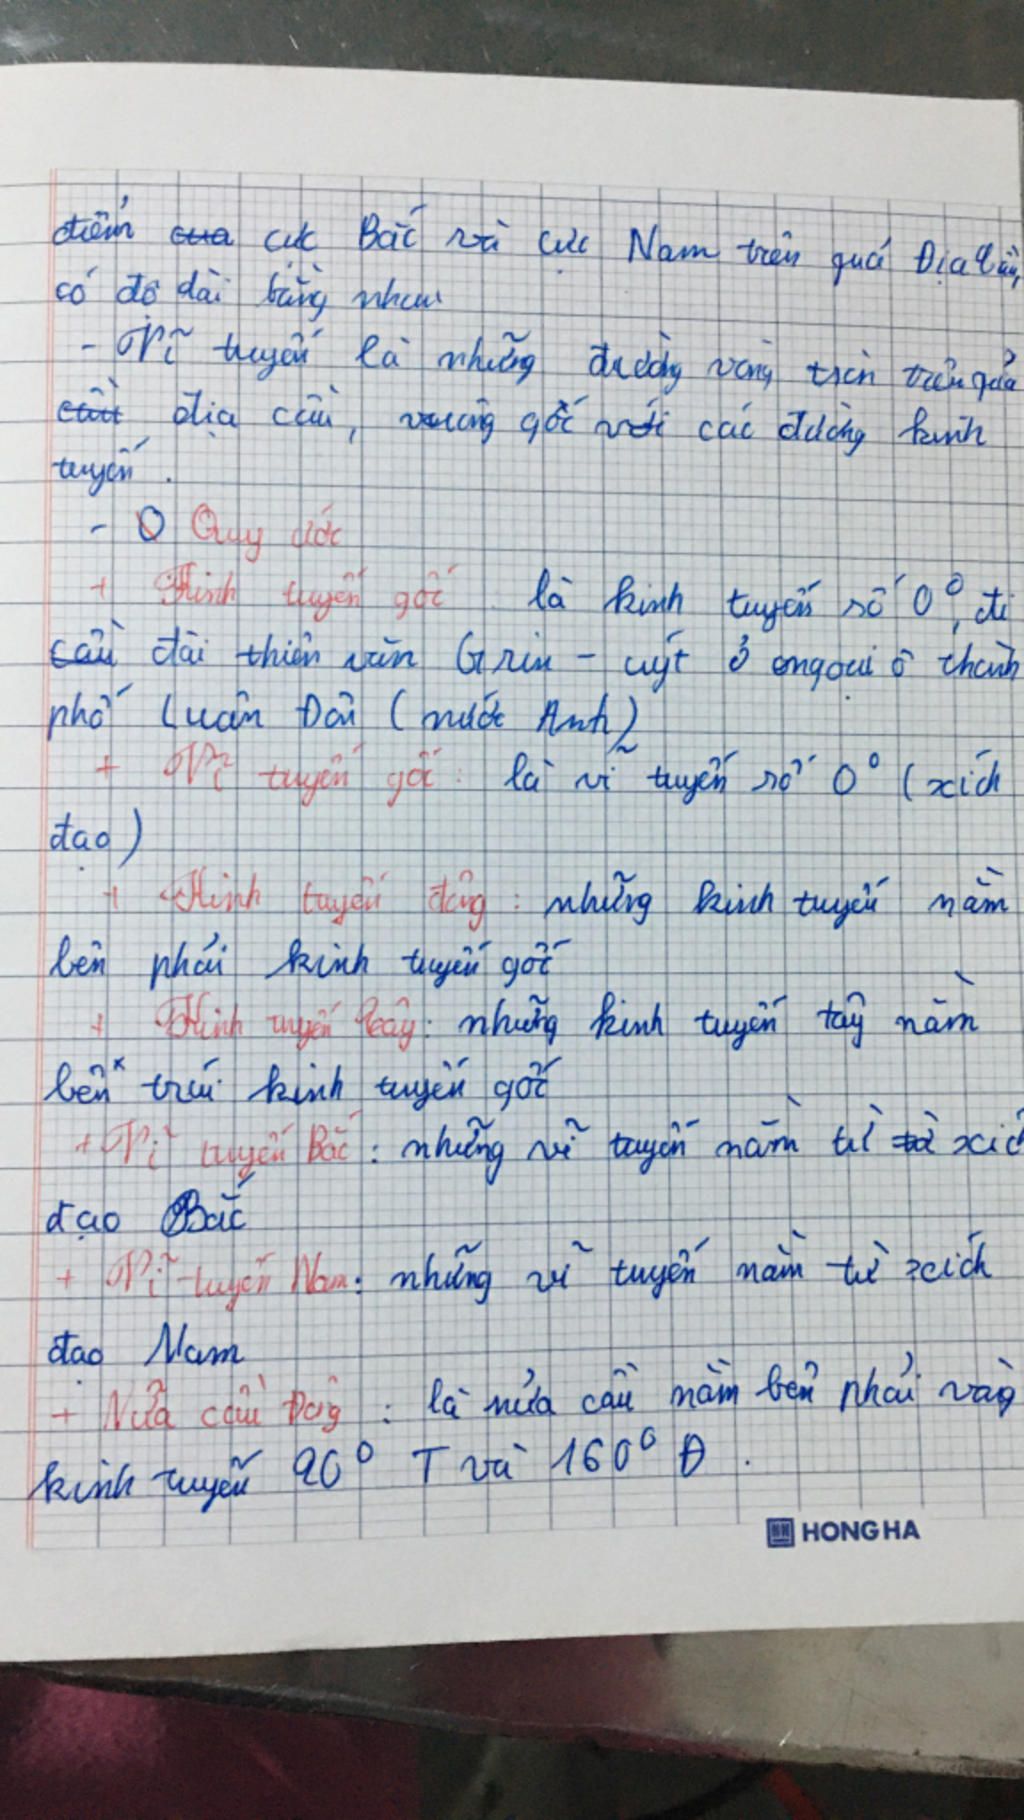 điểm cua cực Bắc và cực Nam trên quả Địa Cầu,
có độ dài bằng nhau
- Vĩ tuyến là những đường vòng tròn trên quả
địa cầu, vuông gốc với các đường kinh
tuyến.
- Quy ước
+ Kinh tuyến gốc: là kinh tuyến số 0°, đi
đài thiên văn Grin - uýt ở ngoại ô thành
phố Luân Đôn (nước Anh)
+ Vĩ tuyến gốc: là vĩ tuyến số 0° (xích
đạo)
+ Kinh tuyến đông: những kinh tuyến nằm
bên phải kinh tuyến gốc
+ Kinh tuyến tây: những kinh tuyến tây nằm
bên trái kinh tuyến gốc
+ Vĩ tuyến Bắc: những vĩ tuyến nằm từ xích
đạo Bắc
+ Vĩ tuyến Nam: những vĩ tuyến nằm từ xích
đạo Nam
+ Nửa cầu Đông: là nửa cầu nằm bên phải vòng
kinh tuyến 20° T và 160° Đ.
HONG HA